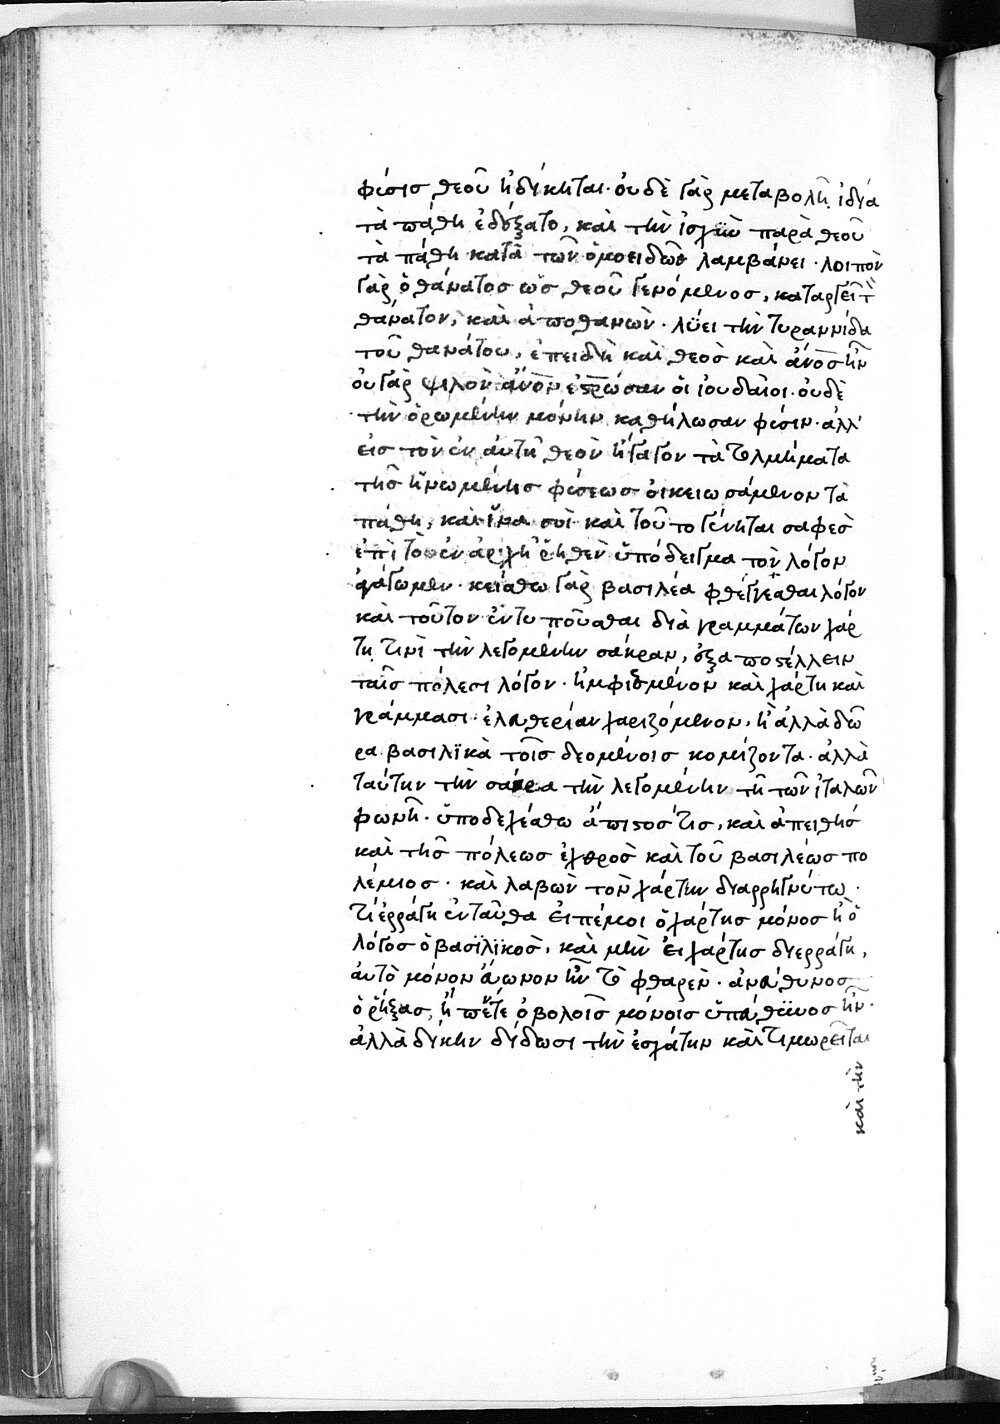 φύσις θεοῦ ἠδίκηται· οὐδὲ γὰρ μεταβολῆ ἰδία
τὰ πάθη ἐδέξατο, καὶ τὴν ἰσχὺν παρὰ θεοῦ
τὰ πάθη κατὰ τῶν ὁμοειδῶν λαμβάνει· λοιπὸν
γὰρ ὁ θάνατος ὡς θεοῦ γενόμενος, καταργεῖ τὸν
θάνατον, καὶ ἀποθανὼν· λύει τὴν τυραννίδα
τοῦ θανάτου, ἐπειδὴ καὶ θεὸς καὶ ἄνος ἦν
οὐ γὰρ ψιλὸν ἄνον ἐσρωσαν οἱ ἰουδαῖοι· οὐδὲ
τὴν ὁρωμένην μόνην καθήλωσαν φύσιν· ἀλλ'
εἰς τὸν ἐν αὐτῆ θεὸν ἤγαγον τὰ τολμήματα
τῆς ἡνωμένης φύσεως οἰκειωσάμενον τὰ
πάθη, καὶ ἵνα σοὶ καὶ τοῦτο γένηται σαφὲς
ἐπὶ τὸ ἐν ἀρχῆ ῥηθὲν ὑπόδειγμα τὸν λόγον
ἀγάγωμεν· κείσθω γὰρ βασιλέα φθέγγεσθαι λόγον
καὶ τοῦτον ἐντυποῦσθαι διὰ γραμμάτων χάρ
τη τινὶ τὴν λεγομένην σάκραν, ἐξαποστέλλειν
ταῖς πόλεσι λόγον· ἠμφιεσμένον καὶ χάρτη καὶ
γράμμασι· ἐλευθερίαν χαριζόμενον, ἢ ἀλλὰ δῶ
ρα βασιλϊκὰ τοῖς δεομένοις κομίζοντα· ἀλλὰ
ταύτην τὴν σάκρα τὴν λεγομένην τῆ τῶν ἰταλῶν
φωνῆ· ὑποδεχέσθω ἄπιστός τις, καὶ ἀπειθὴς
καὶ τῆς πόλεως ἐχθρὸς καὶ τοῦ βασιλέως πο
λέμιος· καὶ λαβὼν τὸν χάρτην διαρρηγνύτω·
τί ἐρράγη ἐνταῦθα εἰπέ μοι ὁ χάρτης μόνος ἢ ὁ
λόγος ὁ βασϊλϊκὸς, καὶ μὴν εἰ χάρτης διερράγη,
αὐτὸ μόνον ἄωνον ἦν τὸ φθαρὲν· ἀνεύθυνος
ὁ ῥήξας, ἢ πέντε ὀβολοῖς μόνοις ὑπεύθυνος ἦν·
ἀλλὰ δίκην δίδωσι τὴν ἐσχάτην καὶ τιμωρεῖται
καὶ τὴν